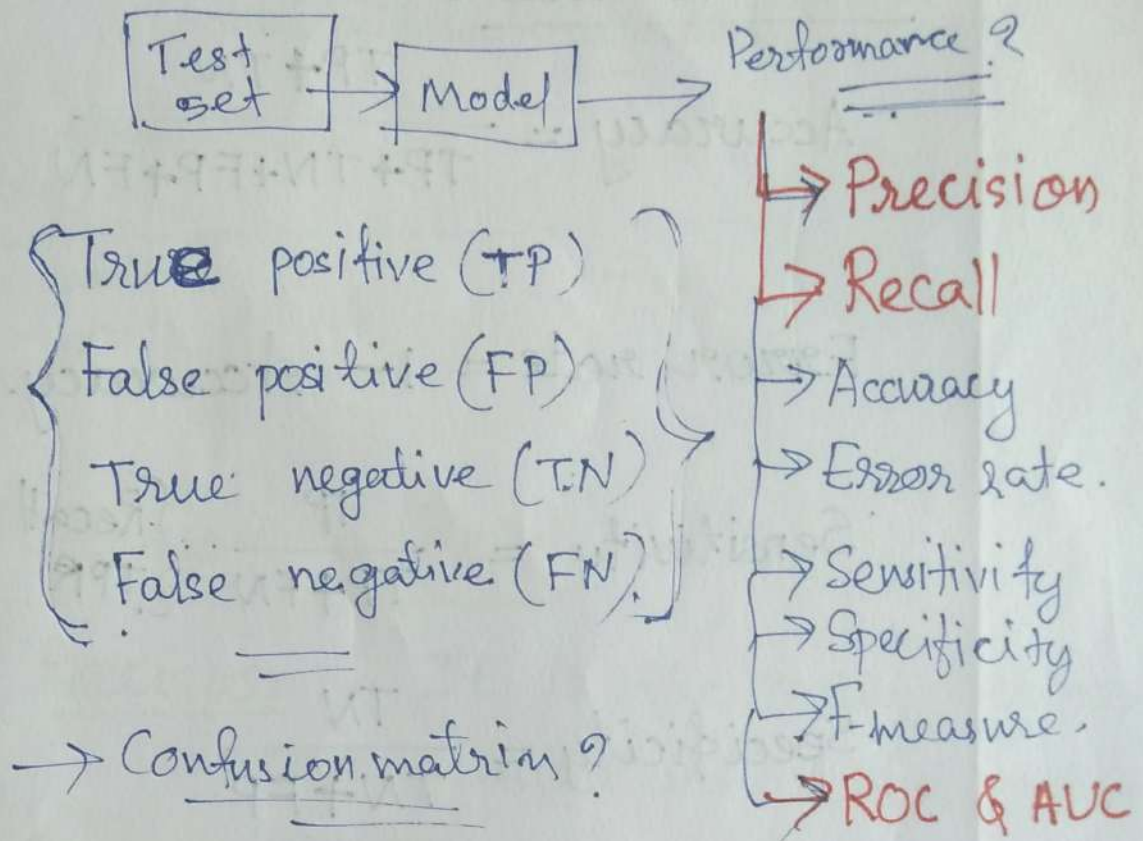 Test set
Model
Performance ?
True positive (TP)
False positive (FP)
True negative (TN)
False negative (FN)
→ Confusion matrix ?
→ Precision
→ Recall
→ Accuracy
→ Error rate.
→ Sensitivity
→ Specificity
→ F-measure.
→ ROC & AUC
Accuracy
TP+TN+FP+FN